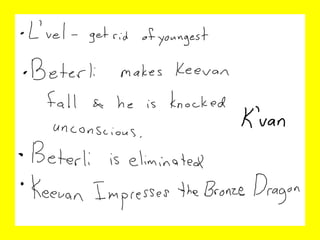 • L'vel - get rid of youngest
• Beterli makes Keevan
fall & he is knocked
unconscious.
K'van
• Beterli is eliminated
• Keevan Impresses the Bronze Dragon